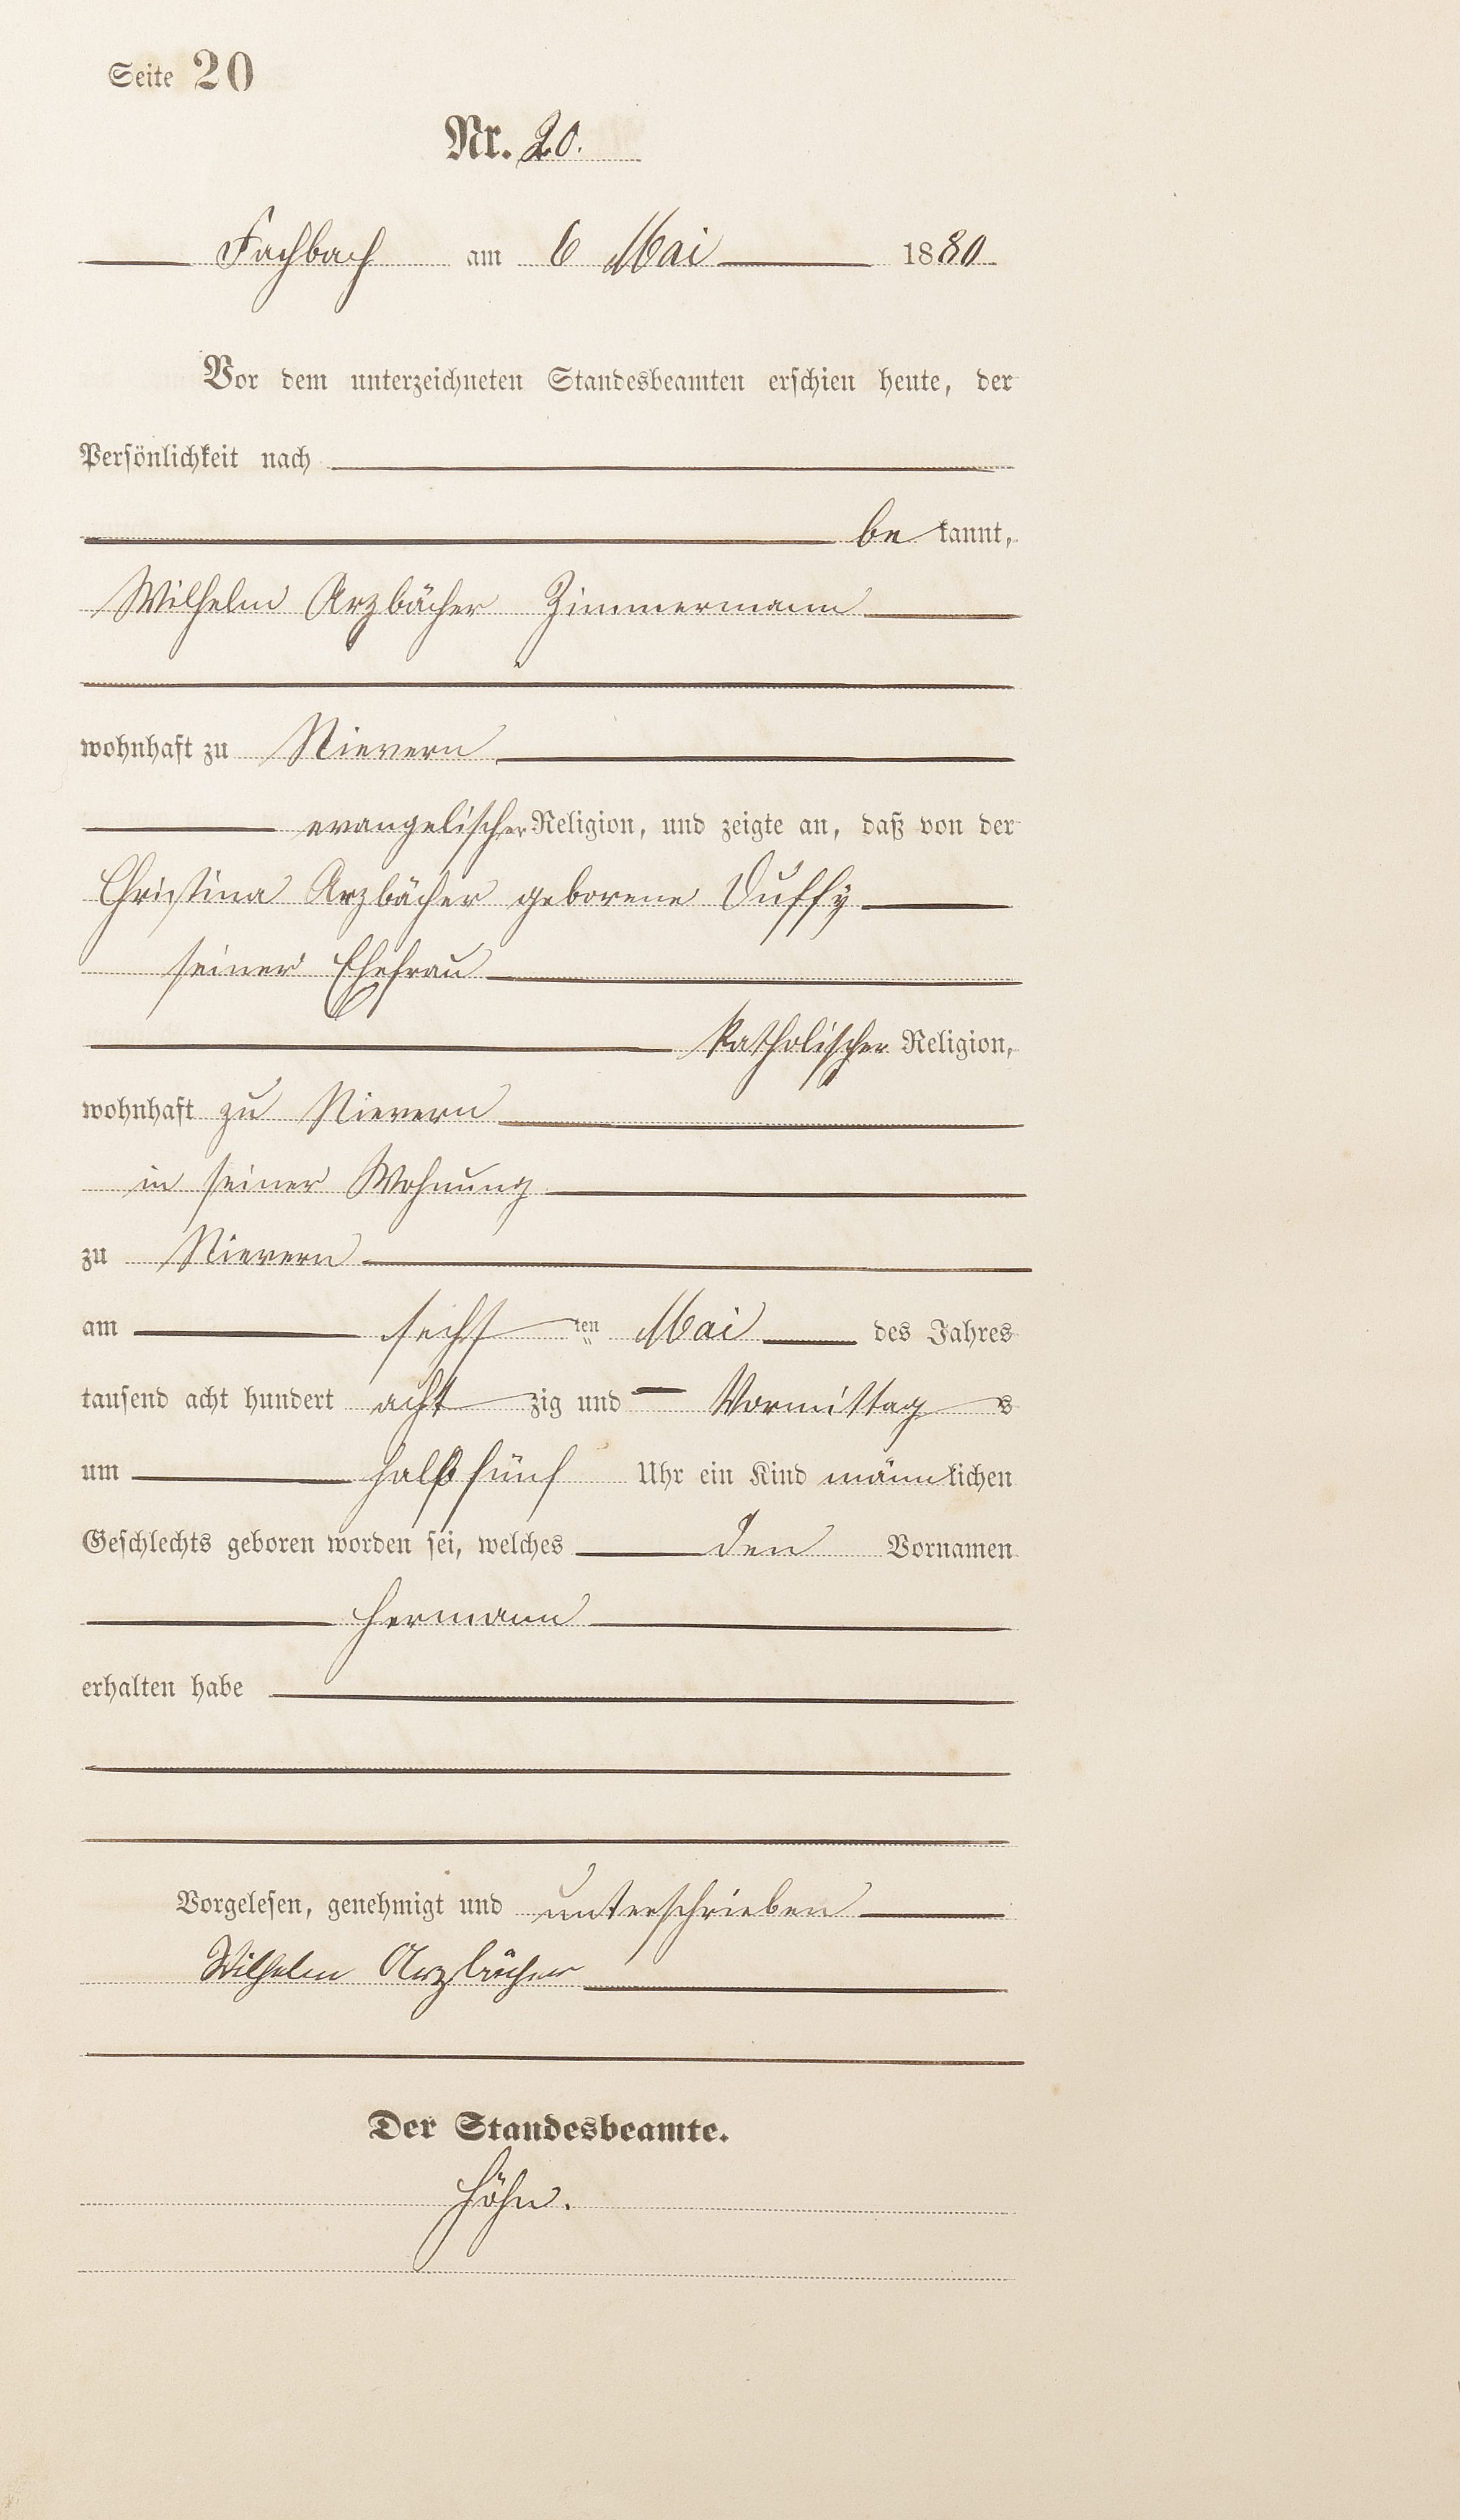 Seite 20
Nr. 20.
Fachbach am 6 Mai 1880
Vor dem unterzeichneten Standesbeamten erschien heute, der
Persönlichkeit nach
be kannt,
Wilhelm Arzbächer Zimmermann
wohnhaft zu Nievern
evangelischer Religion, und zeigte an, daß von der
Christina Arzbächer geborene Duffy
seiner Ehefrau
katholischer Religion,
wohnhaft zu Nievern
in seiner Wohnung
zu Nievern
am sechsten Mai des Jahres
tausend acht hundert achtzig und Vormittags
um halb fünf Uhr ein Kind männlichen
Geschlechts geboren worden sei, welches den Vornamen
Hermann
erhalten habe
Vorgelesen, genehmigt und unterschrieben
Wilhelm Arzbächer
Der Standesbeamte.
Höhn.